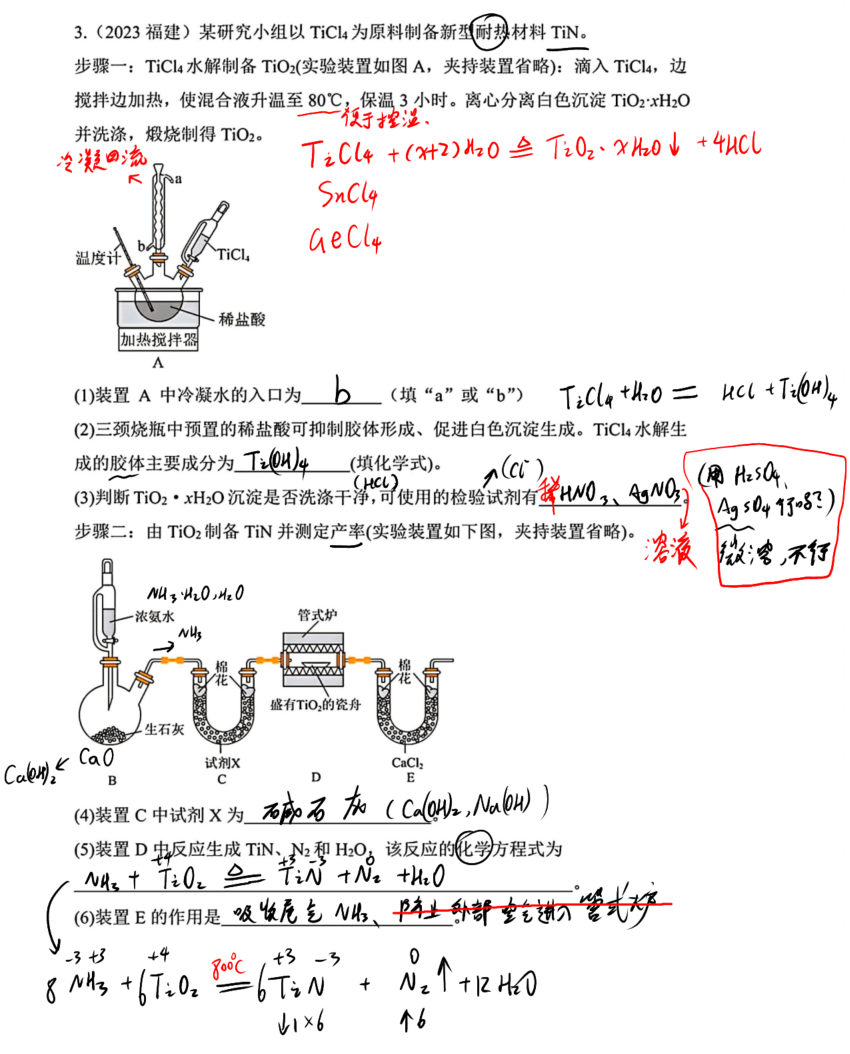 3.（2023 福建）某研究小组以 TiCl₄ 为原料制备新型耐热材料 TiN。
步骤一：TiCl₄ 水解制备 TiO₂(实验装置如图 A，夹持装置省略)：滴入 TiCl₄，边
搅拌边加热，使混合液升温至 80℃，保温 3 小时。离心分离白色沉淀 TiO₂·xH₂O
便于控温.
并洗涤，煅烧制得 TiO₂。
冷凝回流
TiCl₄ + (x+2)H₂O ≜ TiO₂·xH₂O↓ + 4HCl
SnCl₄
GeCl₄
a
b
温度计
TiCl₄
稀盐酸
加热搅拌器
A
(1)装置 A 中冷凝水的入口为 b （填“a”或“b”） TiCl₄ + H₂O = HCl + Ti(OH)₄
(2)三颈烧瓶中预置的稀盐酸可抑制胶体形成、促进白色沉淀生成。TiCl₄ 水解生
成的胶体主要成分为 Ti(OH)₄ (填化学式)。 (Cl⁻)
(HCl)
(3)判断 TiO₂·xH₂O 沉淀是否洗涤干净，可使用的检验试剂有 稀HNO₃、AgNO₃。
溶液
(用 H₂SO₄、
AgSO₄ 行吗?)
微溶，不行
步骤二：由 TiO₂ 制备 TiN 并测定产率(实验装置如下图，夹持装置省略)。
NH₃·H₂O,H₂O
浓氨水
NH₃
管式炉
棉花
棉花
盛有TiO₂的瓷舟
生石灰
CaO
Ca(OH)₂
试剂X
CaCl₂
B
C
D
E
(4)装置 C 中试剂 X 为 碱石灰 (Ca(OH)₂,Na(OH)) 。
(5)装置 D 中反应生成 TiN、N₂ 和 H₂O，该反应的化学方程式为
+4 +3 -3 0
NH₃ + TiO₂ ≜ TiN + N₂ + H₂O 。
(6)装置 E 的作用是 吸收尾气 NH₃、防止外部空气进入管式炉 。
-3 +3 +4 +3 -3 0
8NH₃ + 6TiO₂ =800℃= 6TiN + N₂↑ + 12H₂O
↓1×6 ↑6